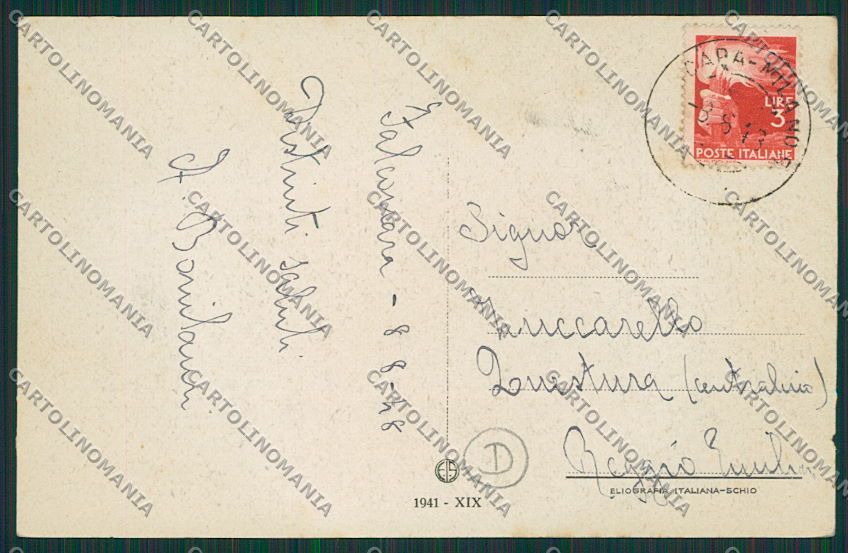 Falconara - 8 8-48
Distinti saluti
LIRE
3
POSTE ITALIANE
Signor
Zuccarello
Questura (centralino)
Reggio Emilia
D
ELIOGRAFIA ITALIANA-SCHIO
1941 - XIX
CARTOLINOMANIA